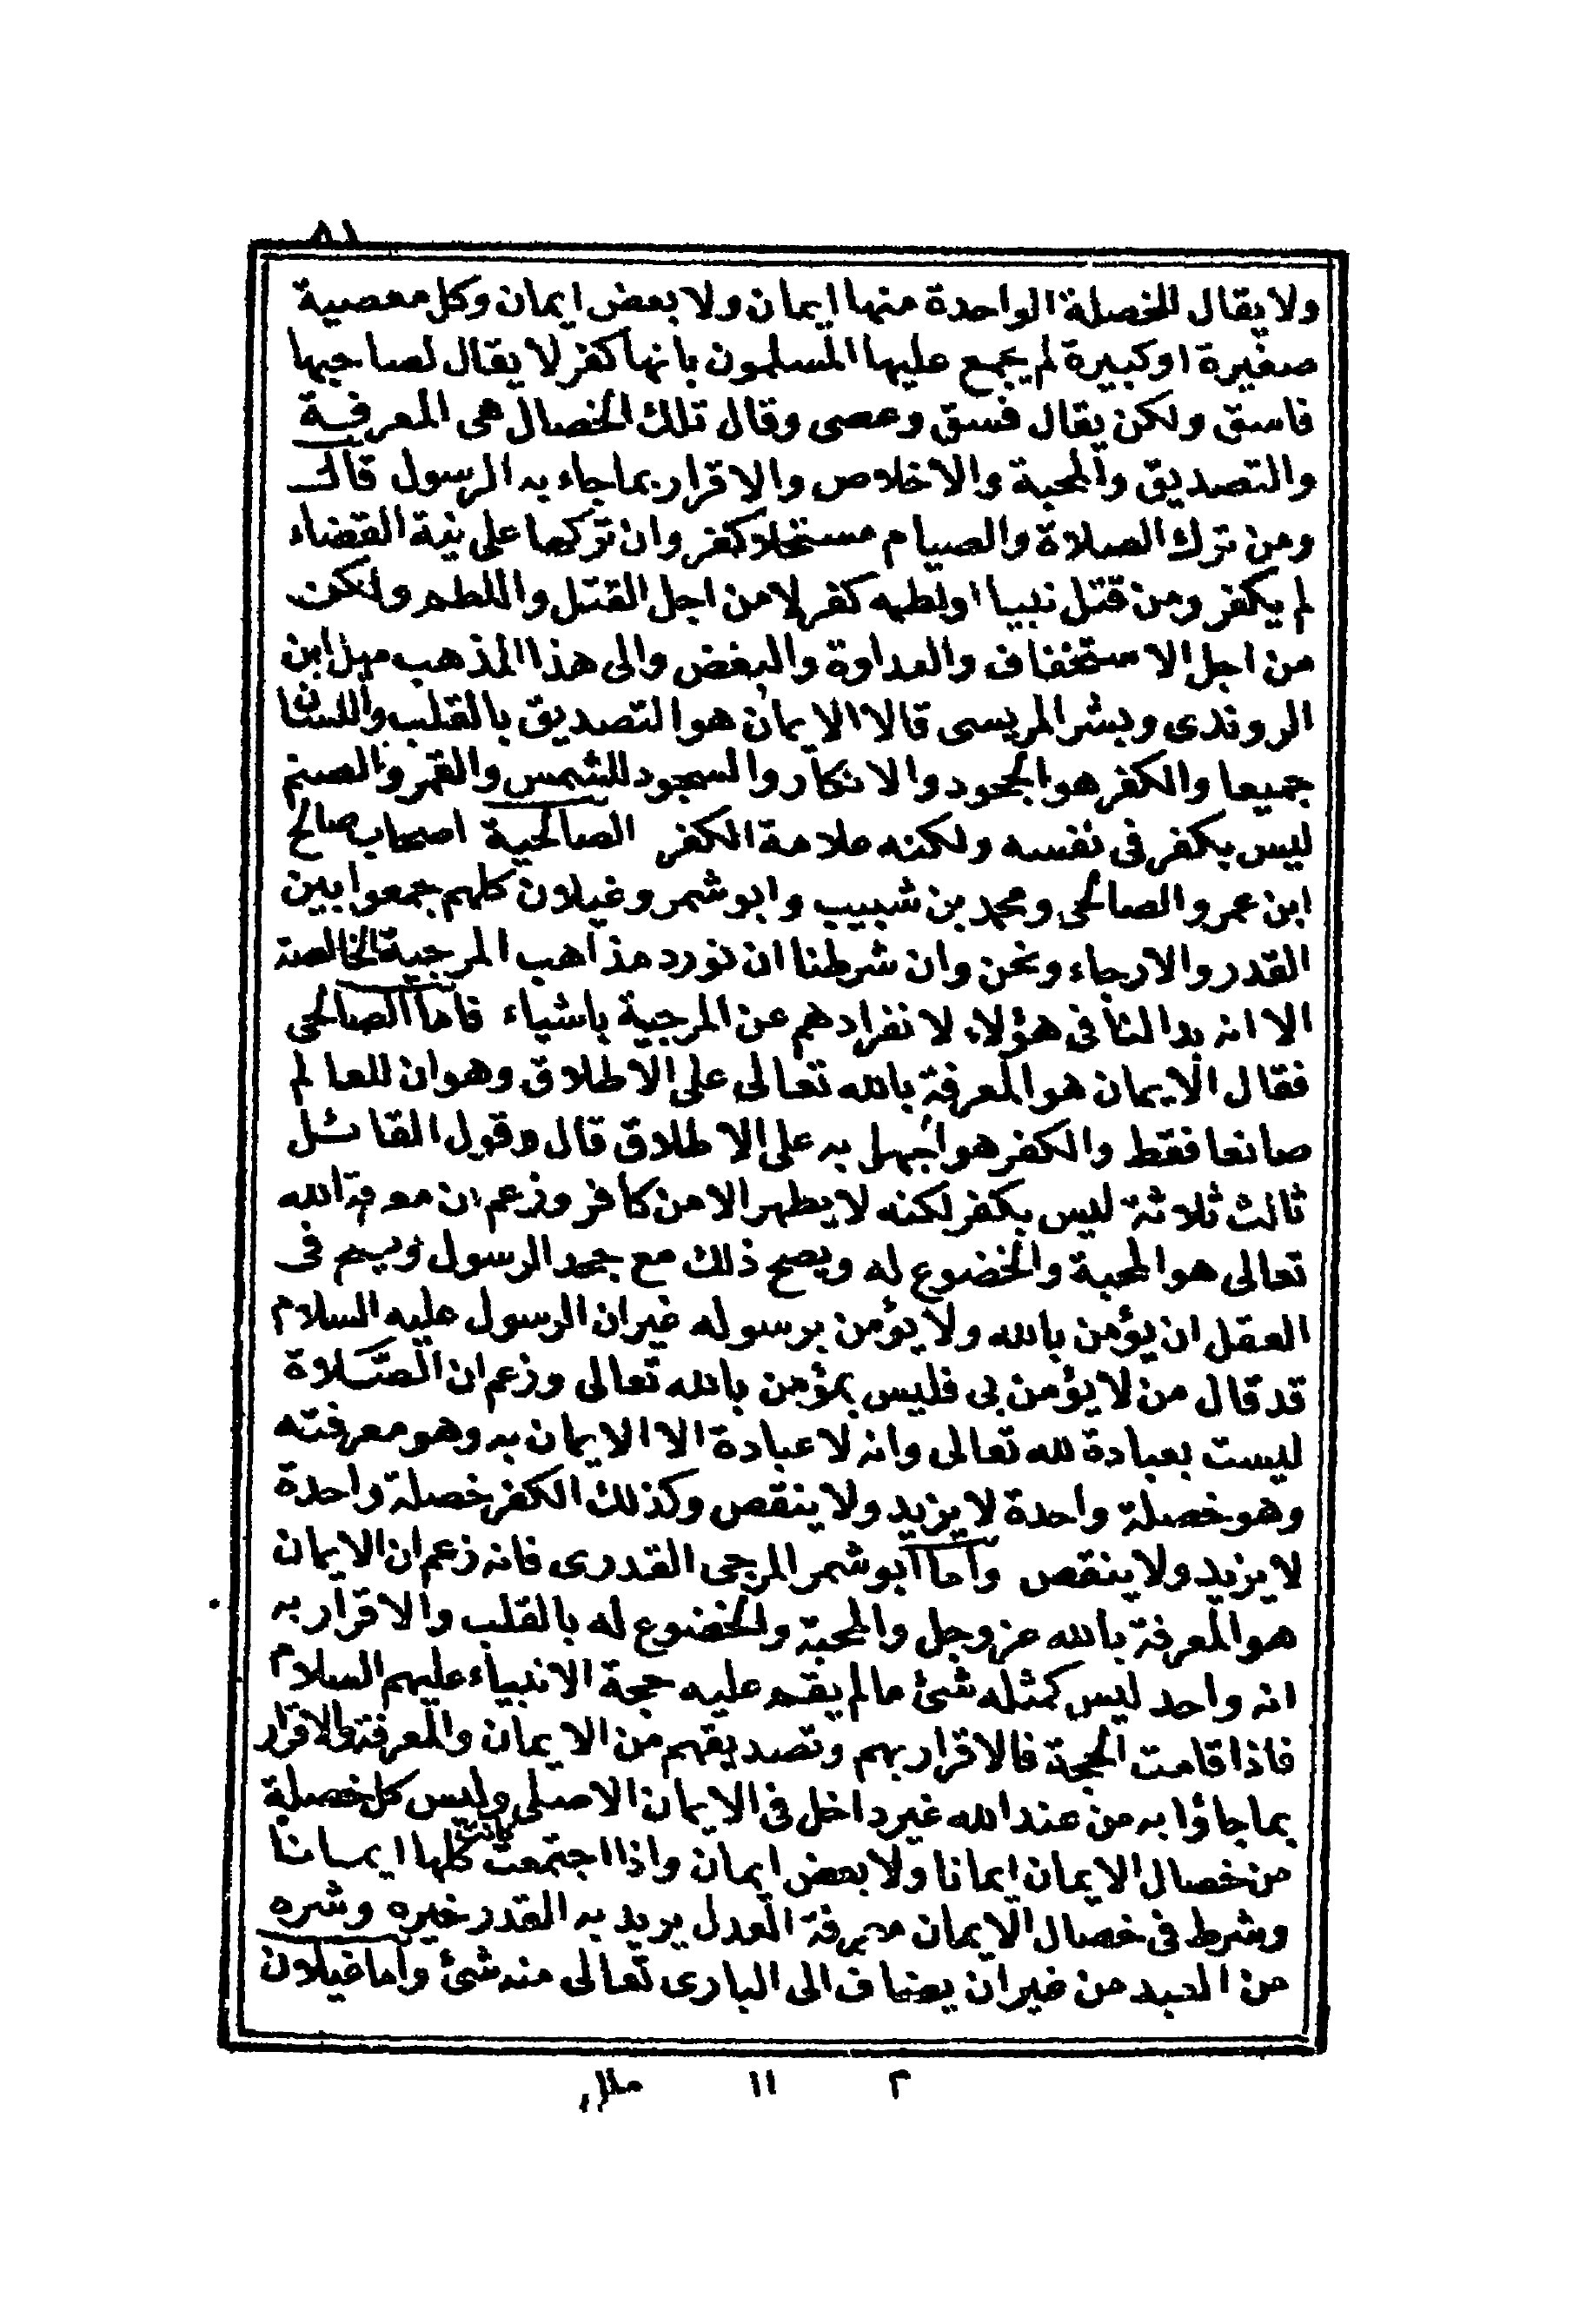 ٨١
ولا يقال للخصلة الواحدة منها ايمان ولا بعض ايمان وكل معصية
صغيرة او كبيرة لم يجمع عليها المسلمون بانها كفر لا يقال لصاحبها
فاسق ولكن يقال فسق وعصى وقال تلك الخصال هى المعرفة
والتصديق والمحبة والاخلاص والاقرار بما جاء به الرسول قال
ومن ترك الصلاة والصيام مستحلا كفر وان تركها على نية القضاء
لم يكفر ومن قتل نبيا او لطمه كفر لا من اجل القتل واللطم ولكن
من اجل الاستخفاف والعداوة والبغض والى هذا المذهب ميل ابن
الروندى وبشر المريسى قالا الايمان هو التصديق بالقلب واللسان
جميعا والكفر هو الجحود والانكار والسجود للشمس والقمر والصنم
ليس بكفر فى نفسه ولكنه علامة الكفر الصالحية اصحاب صالح
ابن عمرو الصالحى ومحمد بن شبيب وابو شمر وغيلان كلهم جمعوا بين
القدر والارجاء ونحن وان شرطنا ان نورد مذاهب المرجية الخالصة
الا انه بدا لنا فى هؤلاء لانفرادهم عن المرجية باشياء فاما الصالحى
فقال الايمان هو المعرفة بالله تعالى على الاطلاق وهو ان للعالم
صانعا فقط والكفر هو الجهل به على الاطلاق قال وقول القائل
ثالث ثلاثة ليس بكفر لكنه لا يظهر الا من كافر وزعم ان معرفة الله
تعالى هو المحبة والخضوع له ويصح ذلك مع جحد الرسول ويصح فى
العقل ان يؤمن بالله ولا يؤمن برسوله غير ان الرسول عليه السلام
قد قال من لا يؤمن بى فليس بمؤمن بالله تعالى وزعم ان الصلاة
ليست بعبادة لله تعالى وانه لا عبادة الا الايمان به وهو معرفته
وهو خصلة واحدة لا يزيد ولا ينقص وكذلك الكفر خصلة واحدة
لا يزيد ولا ينقص واما ابو شمر المرجى القدرى فانه زعم ان الايمان
هو المعرفة بالله عز وجل والمحبة والخضوع له بالقلب والاقرار به
انه واحد ليس كمثله شئ ما لم يقم عليه حجة الانبياء عليهم السلام
فاذا قامت الحجة فالاقرار بهم وتصديقهم من الايمان والمعرفة والاقرار
بما جاؤا به من عند الله غير داخل فى الايمان الاصلى وليس كل خصلة
من خصال الايمان ايمانا ولا بعض ايمان واذا اجتمعت كانت كلها ايمانا
وشرط فى خصال الايمان معرفة العدل يريد به القدر خيره وشره
من العبد من غير ان يضاف الى البارى تعالى منه شئ واما غيلان
٢ ١١ ملل